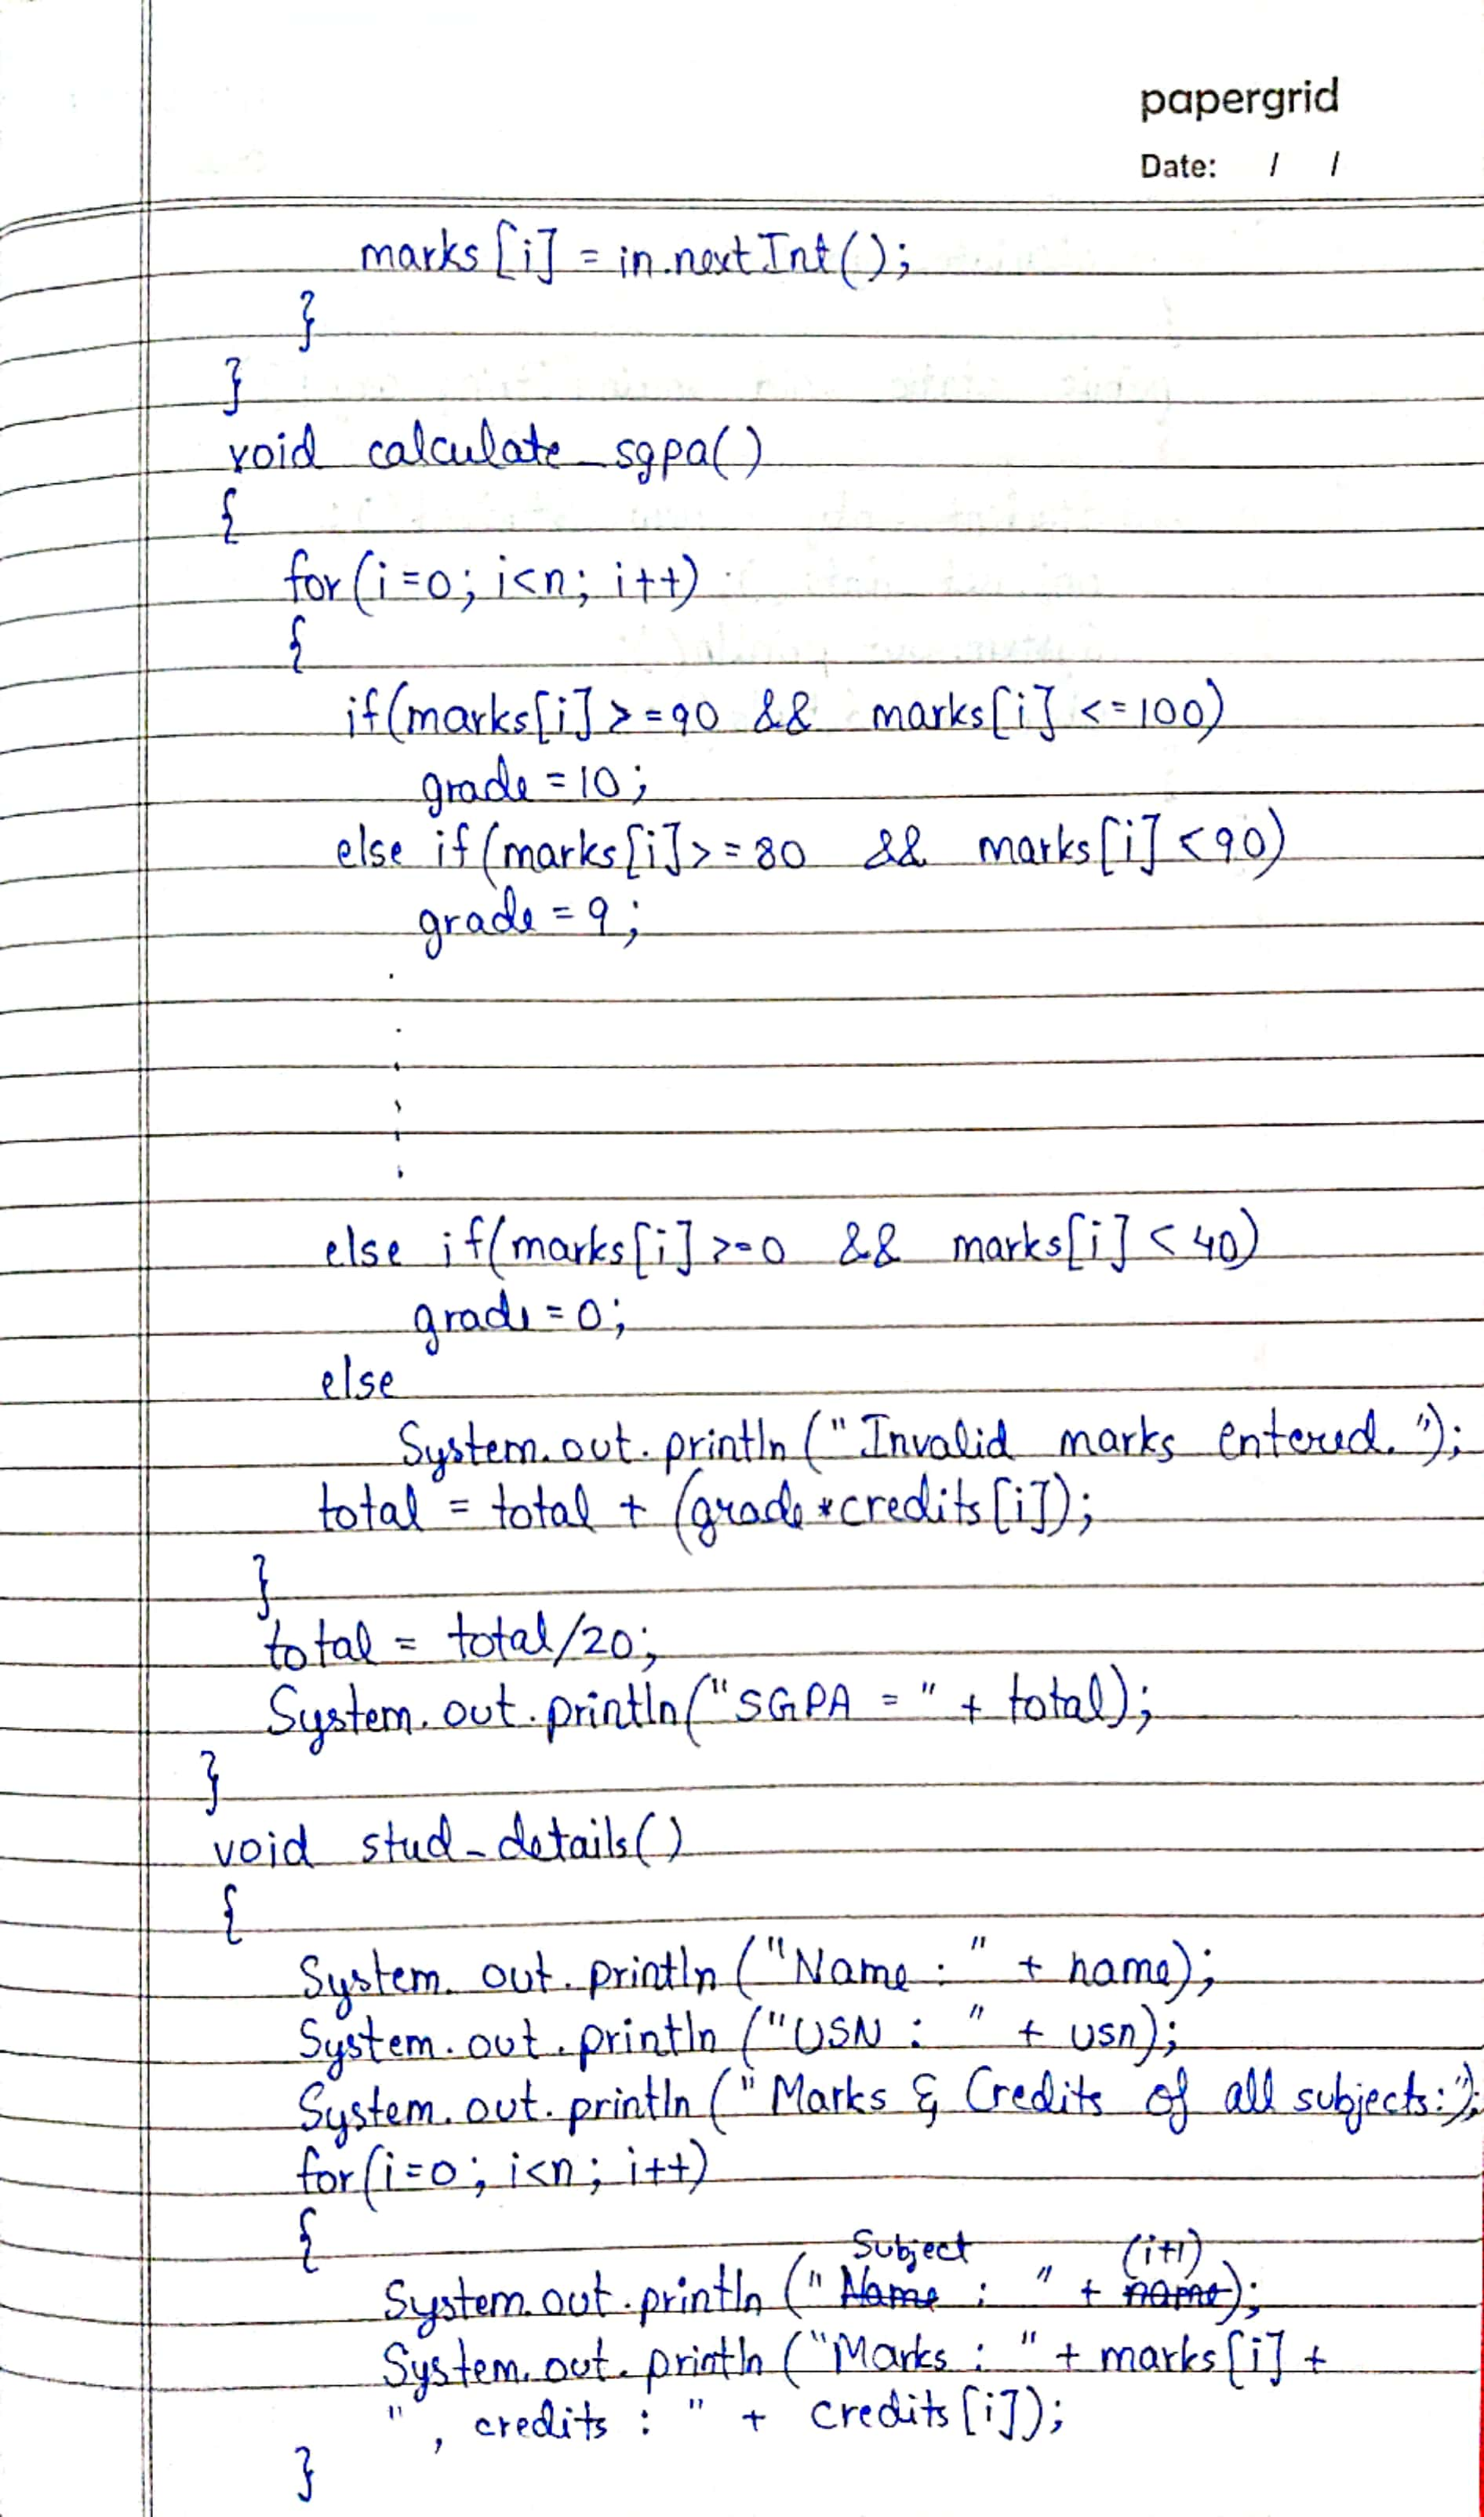 papergrid
Date: / /
marks[i] = in.nextInt();
}
}
void calculate_sgpa()
{
for(i=0; i<n; i++)
{
if(marks[i]>=90 && marks[i] <=100)
grade = 10;
else if(marks[i]>=80 && marks[i] <90)
grade = 9;
.
.
.
.
.
.
else if(marks[i]>=0 && marks[i] < 40)
grade = 0;
else
System.out.println("Invalid marks entered.");
total = total + (grade*credits[i]);
}
total = total/20;
System.out.println("SGPA = " + total);
}
void stud_details()
{
System.out.println("Name : " + name);
System.out.println("USN : " + usn);
System.out.println("Marks & Credits of all subjects:");
for(i=0; i<n; i++)
{
Subject (i+1)
System.out.println("Name : " + name);
System.out.println("Marks : " + marks[i] +
", credits : " + credits[i]);
}